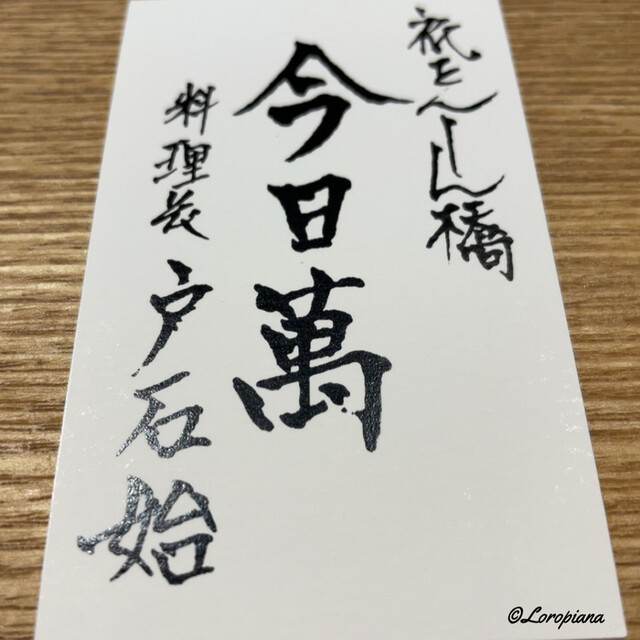 祇をんしん橋
今日萬
料理長 戸石始
©Loropiana